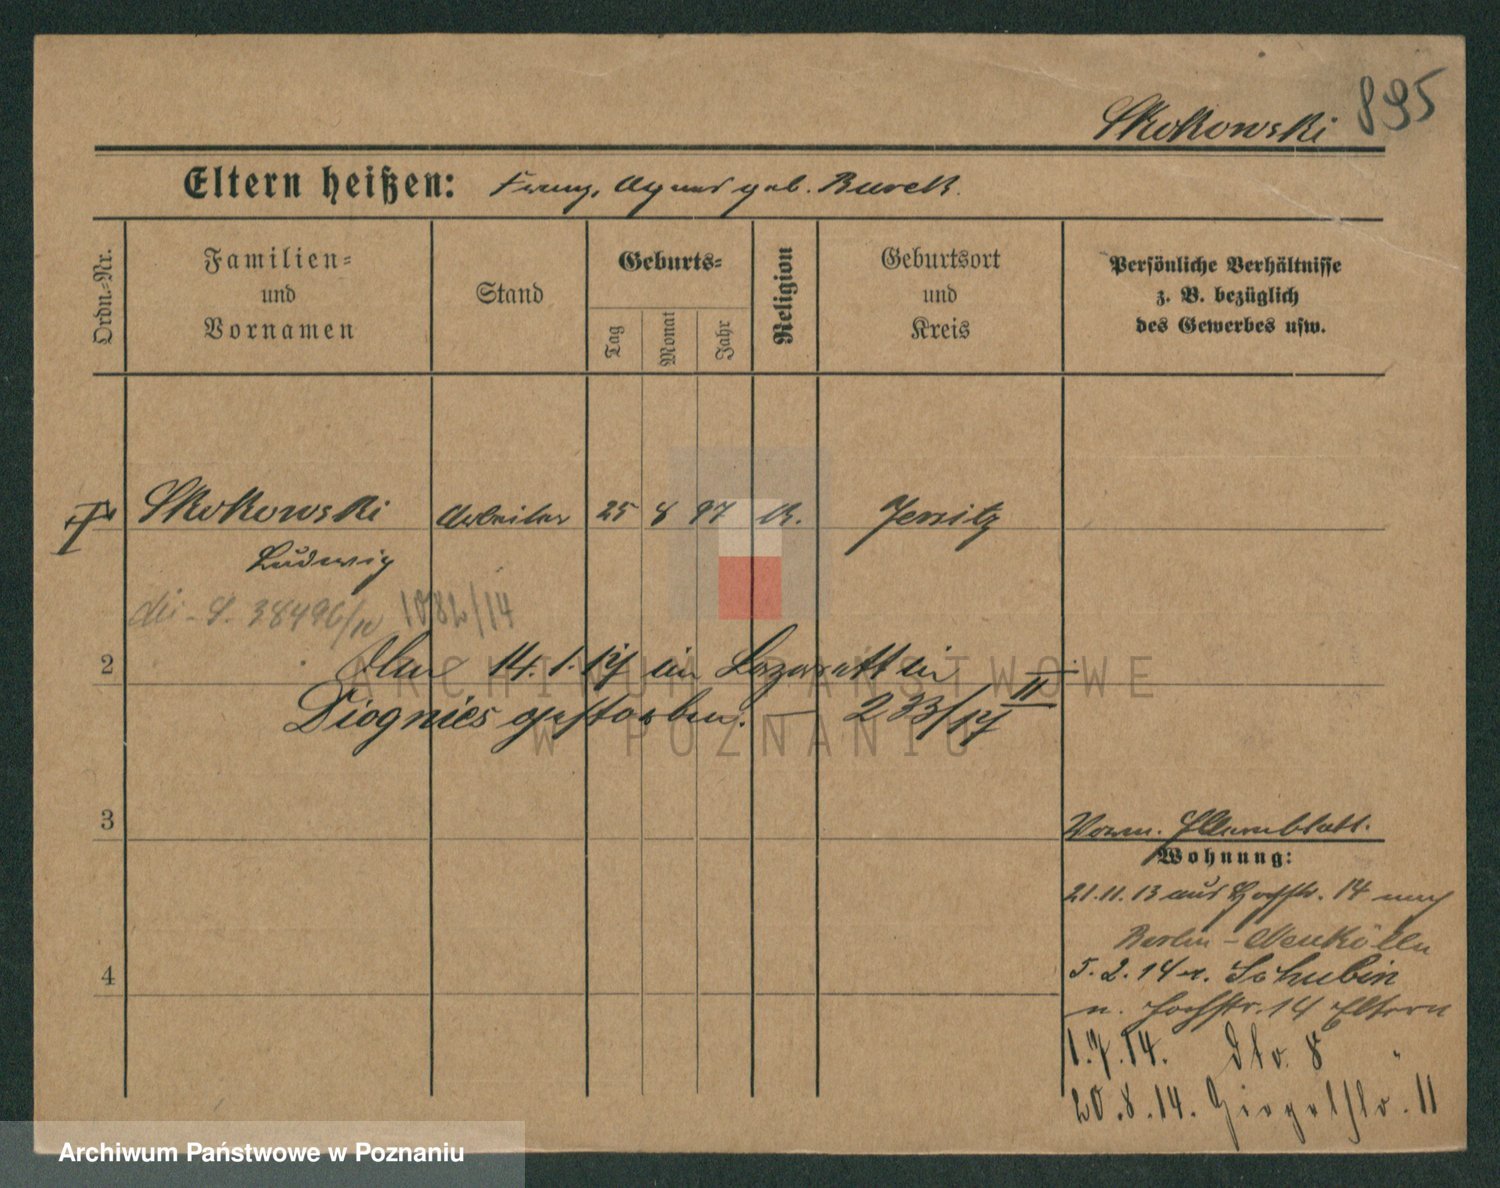 Skokowski 895
Eltern heißen: Franz, Agnes geb. Burek.
Ordn.-Nr.
Familien-
und
Vornamen
Stand
Geburts-
Tag
Monat
Jahr
Religion
Geburtsort
und
Kreis
Persönliche Verhältnisse
z. B. bezüglich
des Gewerbes usw.
Skokowski Arbeiter 25 8 97 k. Jersitz
Ludwig
38496/10 1082/14
2 Am 14.1.17 im Lazarett in
Diognies gestorben. — 233/17 II
ARCHIWUM PAŃSTWOWE
W POZNANIU
3
Vorm. Elternblatt.
Wohnung:
21.11.13 aus Hochstr. 14 nach
Berlin - Neukölln
4
5.2.14 v. Schubin
n. Hochstr. 14 Eltern
1.7.14. 8 "
20.8.14. 11
Archiwum Państwowe w Poznaniu